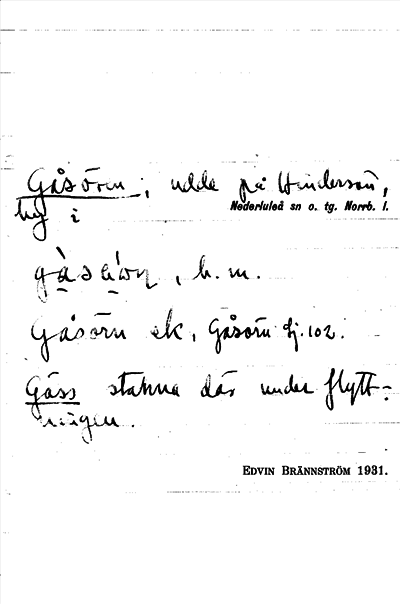 Gåsören; udde på Hindersön,
Nederluleå sn o. tg. Norrb. l.
by i
b. m.
Gåsörn ek, Gåsörn Sj. 102.
Gäss stanna där under flytt-
ningen.
EDVIN BRÄNNSTRÖM 1931.